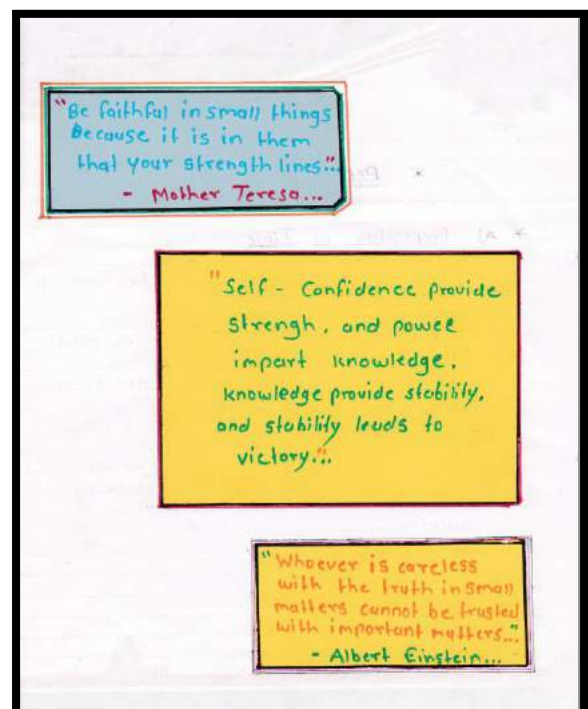 "Be faithful in small things
Because it is in them
that your strength lines"...
- Mother Teresa...
"Self - Confidence provide
strengh, and powee
impart knowledge,
knowledge provide stability,
and stability leads to
victory."...
"Whoever is careless
with the truth in small
matters cannot be trusted
with important matters..."
- Albert Einstein...